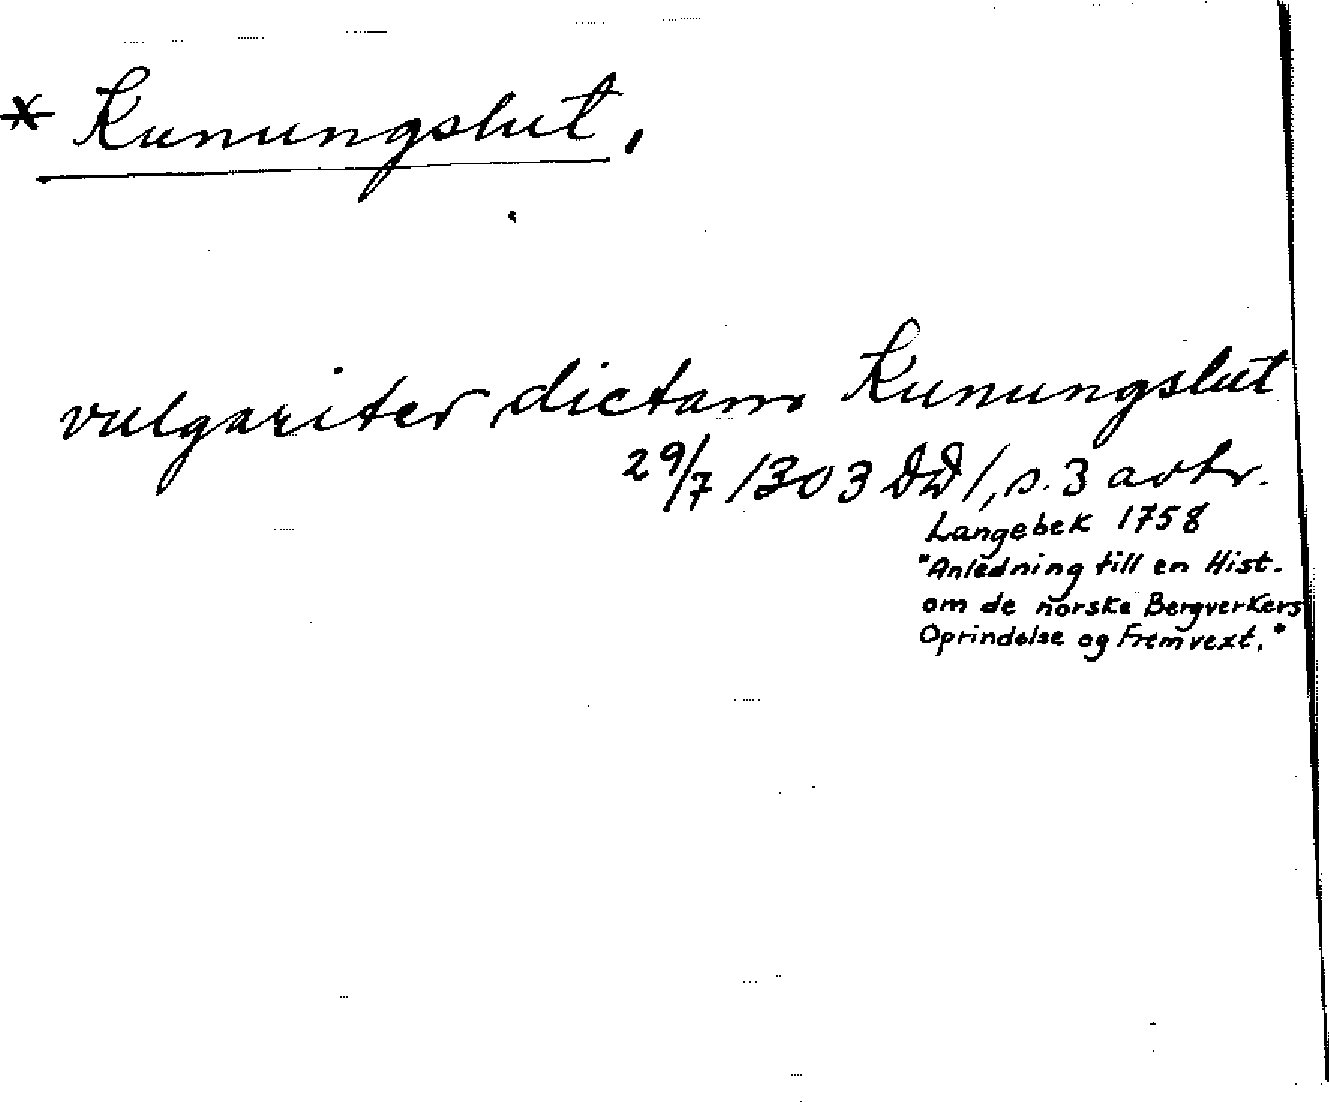 * Kunungslut.
vulgariter dictam Kunungslut
29/7 1303 DD1, s. 3 avhr.
Langebek 1758
"Anledning till en Hist.
om de norske Bergverkers
Oprindelse og Fremvext."